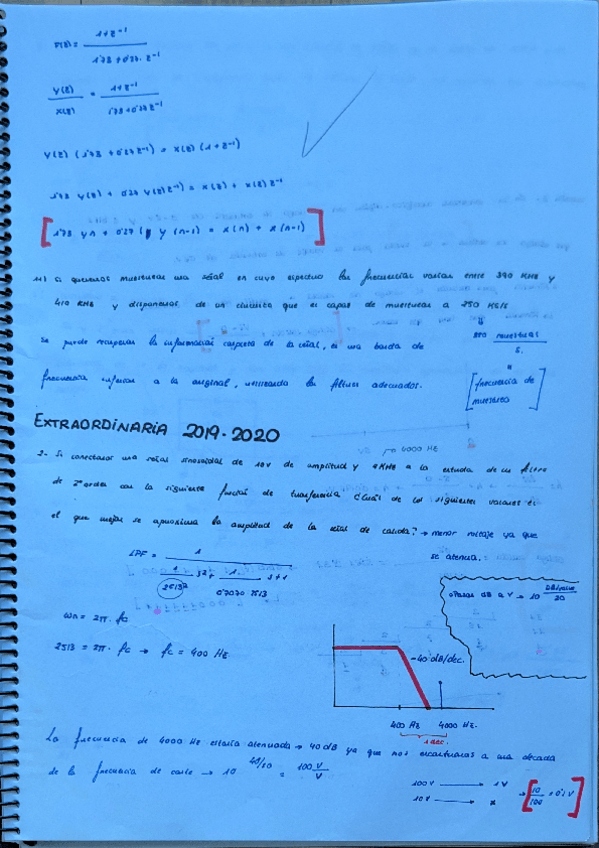 F(z) = (1+z⁻¹) / (1'73 + 0'27· z⁻¹)
Y(z)/X(z) = (1+z⁻¹) / (1'73+0'27z⁻¹)
Y(z) (1'73 + 0'27z⁻¹) = X(z) (1+z⁻¹)
1'73 Y(z) + 0'27 Y(z)z⁻¹ = X(z) + X(z)z⁻¹
[1'73 yn + 0'27 y (n-1) = x(n) + x(n-1)]
11) Si queremos muestrear una señal en cuyo espectro las frecuencias varían entre 390 KHz y
410 KHz y disponemos de un circuito que es capaz de muestrear a 250 KS/s
se puede recuperar la información completa de la señal, en una banda de
muestras / s.
frecuencia inferior a la original, utilizando los filtros adecuados.
[frecuencia de
muestreo]
EXTRAORDINARIA 2019-2020
2- Si conectamos una señal sinusoidal de 10V de amplitud y 4KHz a la entrada de un filtro
de 2º orden con la siguiente función de transferencia ¿Cuál de los siguientes valores es
el que mejor se aproxima la amplitud de la señal de salida? → menor voltaje ya que
se atenúa.
LPF = 1 / (1/2513² s² + 1/(0'7070·2513) s+1)
*Pasar dB a V → 10^(dB/20)
ωn = 2π · fc
2513 = 2π · fc → fc = 400 Hz
-40 dB/dec.
400 Hz 4000 Hz.
1 dec.
La frecuencia de 4000 Hz estaría atenuada → 40 dB ya que nos encontramos a una década
de la frecuencia de corte → 10^(40/20) = 100 V/V
100V → 1V
10V → x → [10/100 = 0'1 V]